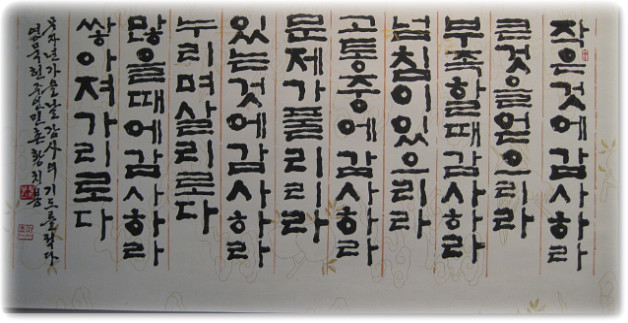 작은것에감사하라
큰것을얻으리라
부족할때감사하라
넘침이있으리라
고통중에감사하라
문제가풀리리라
있는것에감사하라
누리며살리로다
많을때에감사하라
쌓아져가리로다
가을날감사의기도를
연묵헌주인민촌황치봉